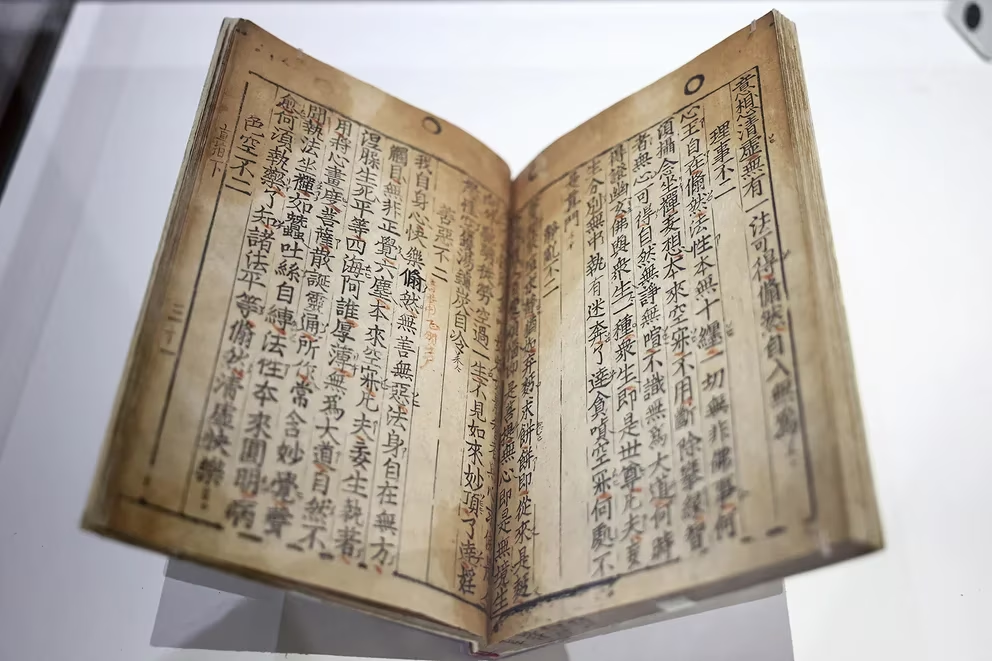 意想清虛無有一法可得翛然自入無爲
理事不二
心王自在翛然法性本無十纏一切無非佛事何
須攝念坐禪妄想本來空寂不用斷除攀緣智
者無心可得自然無諍無喧不識無爲大道何時
得證幽玄佛與衆生一種衆生即是世尊凡夫妄
生分別無中執有迷奔了達貪嗔空寂何處不
是眞門
靜亂不二
求靜猶如弃麪求餠餠即從來是麪
即是菩提無心即是無境生
徒勞空過一生不見如來妙頂了達婬
慾性空鑊湯爐炭自冷
善惡不二
我自身心快樂翛然無善無惡法身自在無方
觸目無非正覺六塵本來空寂凡夫妄生執著
涅槃生死平等四海阿誰厚薄無爲大道自然不
用將心畫度菩薩散誕靈通所作常含妙覺聲
聞執法坐禪如蠶吐絲自縛法性本來圓明病
愈何須執藥了知諸法平等翛然清虛快樂
色空不二
直指下